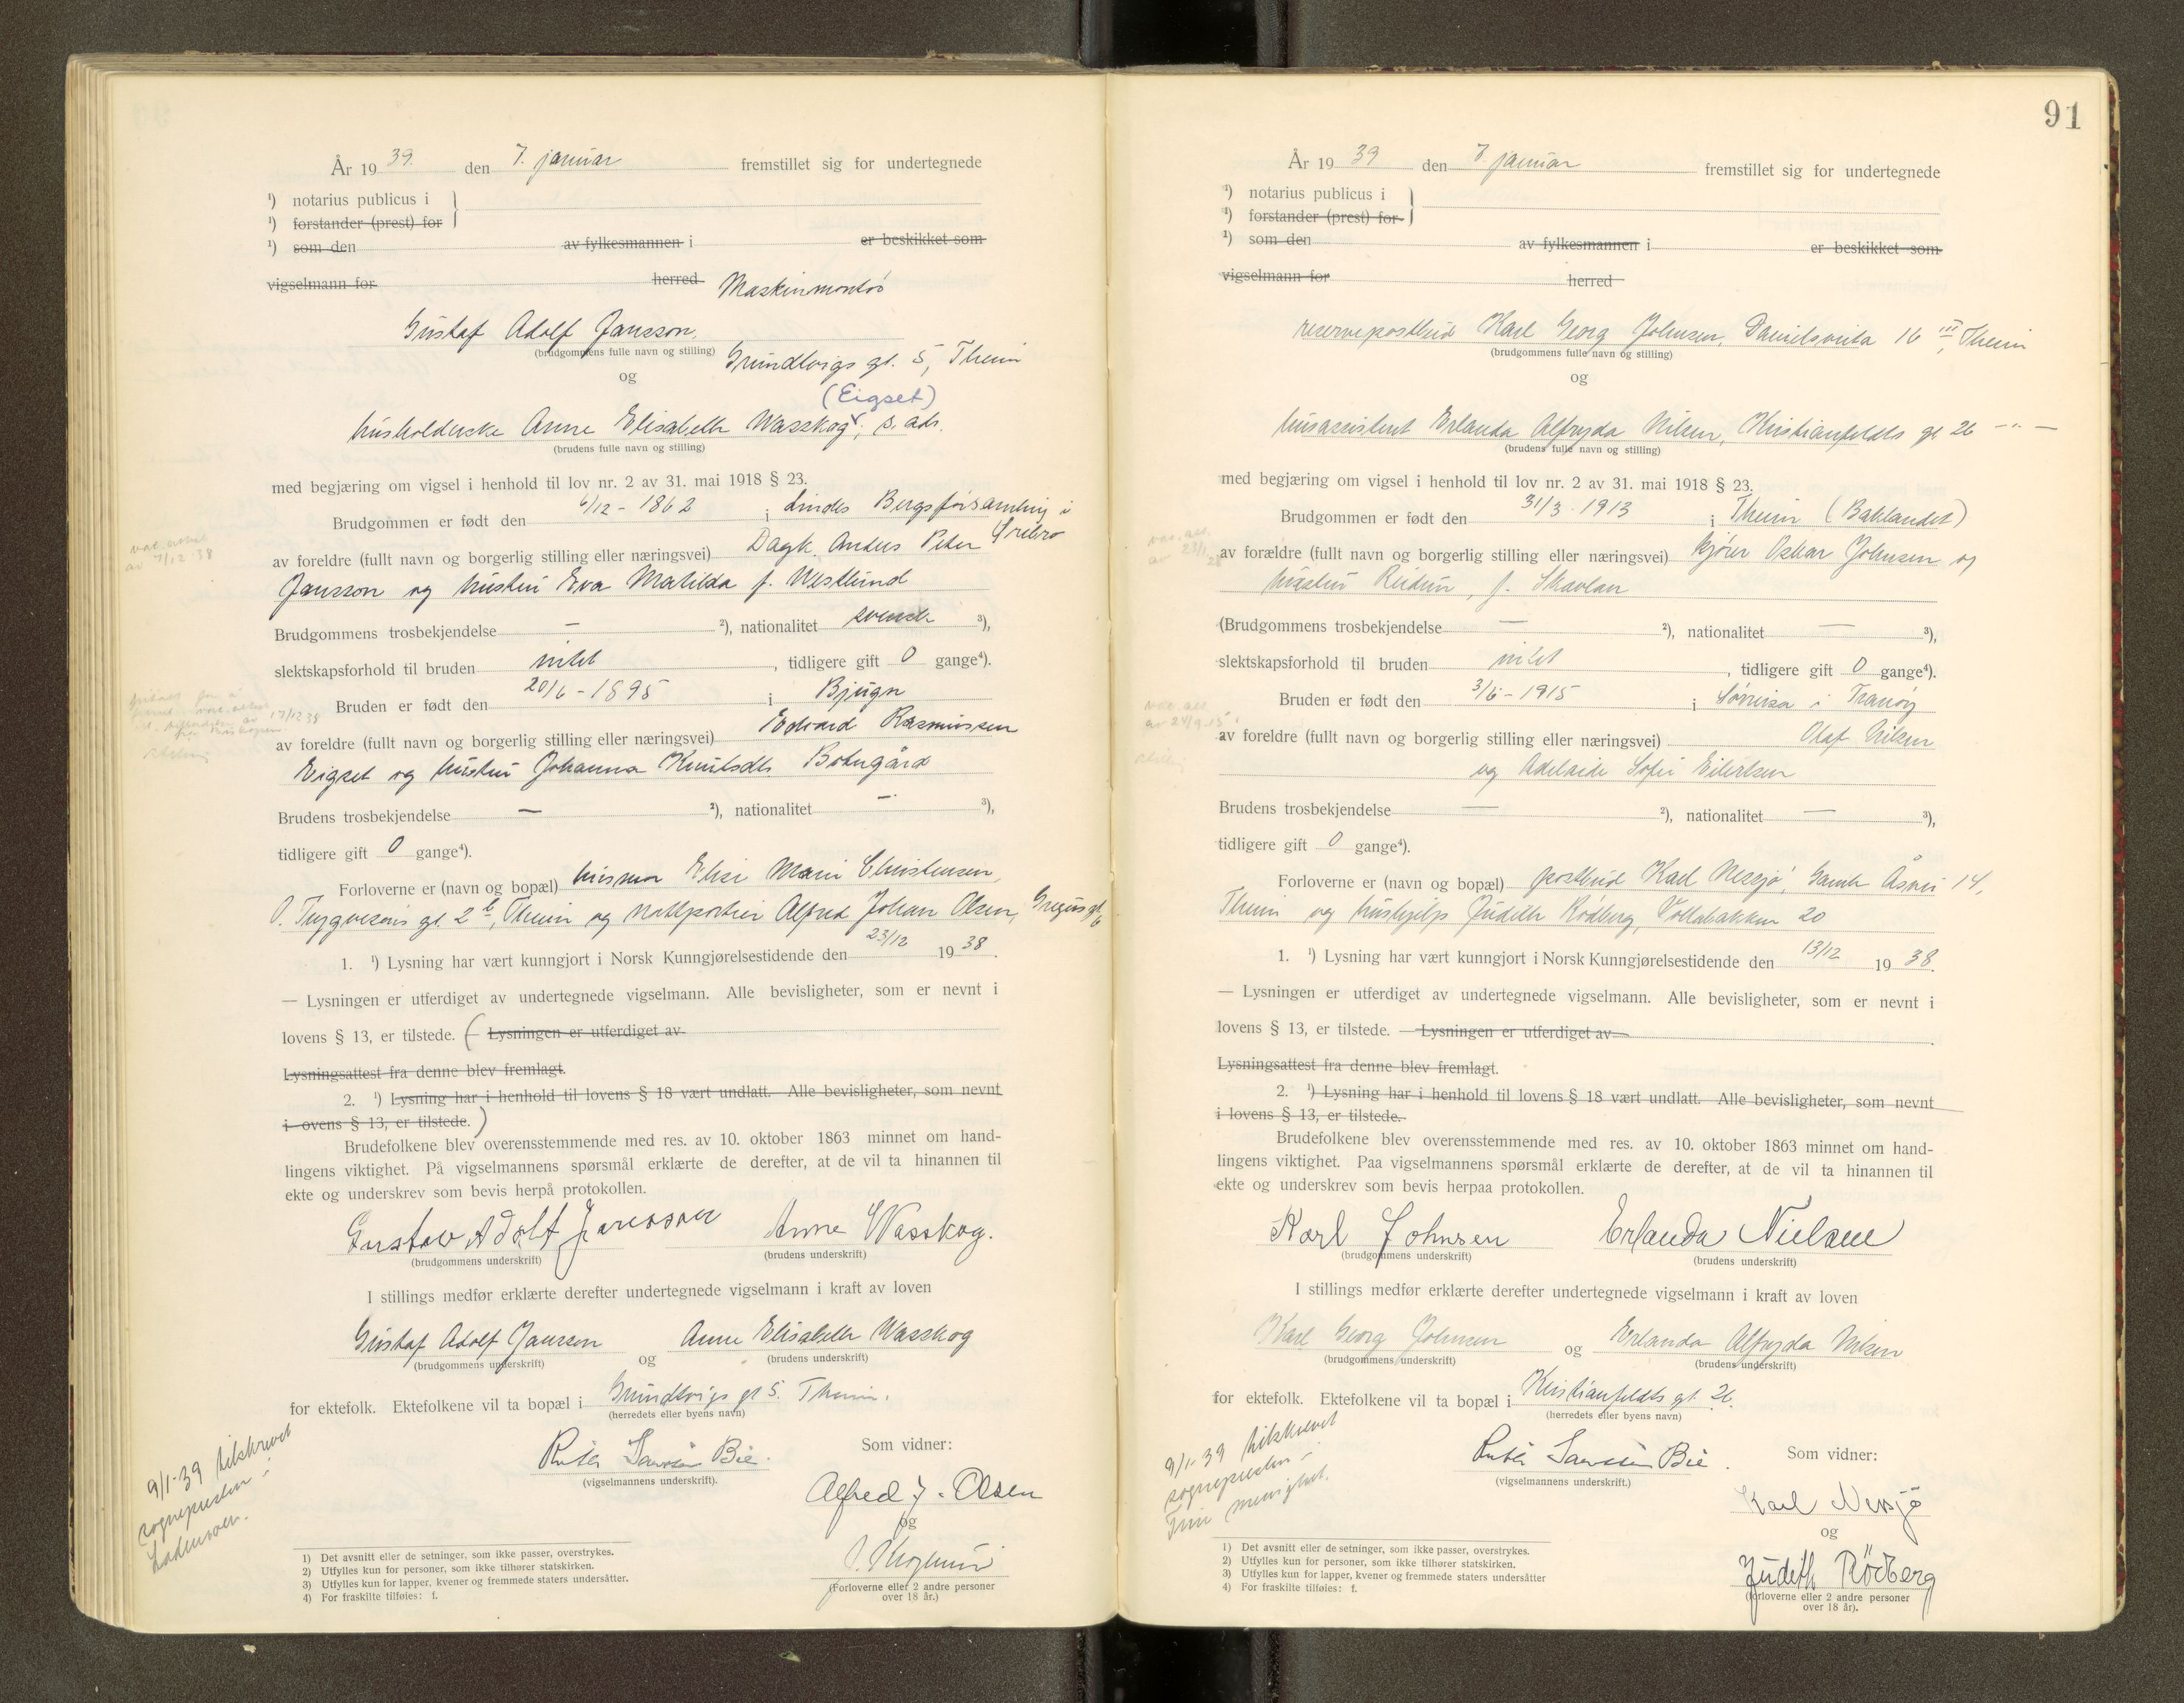 År 1939. den 7. januar fremstillet sig for undertegnede
¹) notarius publicus i
¹) forstander (prest) for
¹) som den av fylkesmannen i er beskikket som
vigselmann for herred Maskinmontör
Gustaf Adolf Jansson,
(brudgommens fulle navn og stilling) Grundtvigs gt. 5, Theim
og
(Eigset)
husholderske Anne Elisabeth Wasskog, s. ads.
(brudens fulle navn og stilling)
med begjæring om vigsel i henhold til lov nr. 2 av 31. mai 1918 § 23.
Brudgommen er født den 6/12 - 1862 i Lindes Bergsförsamling i
Örebro
av foreldre (fullt navn og borgerlig stilling eller næringsvei) Dagk. Anders Peter
Jansson og hustru Eva Matilda f. Westlund
Brudgommens trosbekjendelse — ²), nationalitet svensk ³),
slektskapsforhold til bruden intet, tidligere gift 0 gange⁴).
Bruden er født den 20/6 - 1895 i Bjugn
av foreldre (fullt navn og borgerlig stilling eller næringsvei) Edvard Rasmussen
Eigset og hustru Johanna Knutsdtr Botngård
Brudens trosbekjendelse — ²), nationalitet — ³),
tidligere gift 0 gange⁴).
Forloverne er (navn og bopæl) husmor Elise Marie Christensen,
O. Tryggvesøns gt. 2 b, Theim og nattportier Alfred Johan Olsen, Gregus gt. 6
1. ¹) Lysning har vært kunngjort i Norsk Kunngjørelsestidende den 23/12 1938.
— Lysningen er utferdiget av undertegnede vigselmann. Alle bevisligheter, som er nevnt i
lovens § 13, er tilstede. (— Lysningen er utferdiget av
Lysningsattest fra denne blev fremlagt.
2. ¹) Lysning har i henhold til lovens § 18 vært undlatt. Alle bevisligheter, som nevnt
i ovens § 13, er tilstede.)
Brudefolkene blev overensstemmende med res. av 10. oktober 1863 minnet om hand-
lingens viktighet. På vigselmannens spørsmål erklærte de derefter, at de vil ta hinannen til
ekte og underskrev som bevis herpå protokollen.
Gustav Adolf Jansson Anne Wasskog.
(brudgommens underskrift) (brudens underskrift)
I stillings medfør erklærte derefter undertegnede vigselmann i kraft av loven
Gustaf Adolf Jansson og Anne Elisabeth Wasskog
(brudgommens underskrift) (brudens underskrift)
for ektefolk. Ektefolkene vil ta bopæl i Grundtvigs gt 5. Theim.
(herredets eller byens navn)
9/1-39 tilskrevet
sognepresten i
Lademoen.
Som vidner:
(vigselmannens underskrift).
Alfred J. Olsen
og
(Forloverne eller 2 andre personer
over 18 år.)
1) Det avsnitt eller de setninger, som ikke passer, overstrykes.
2) Utfylles kun for personer, som ikke tilhører statskirken.
3) Utfylles kun for lapper, kvener og fremmede staters undersåtter.
4) For fraskilte tilføies: f.
91
År 1939 den 7. januar fremstillet sig for undertegnede
¹) notarius publicus i
¹) forstander (prest) for
¹) som den av fylkesmannen i er beskikket som
vigselmann for herred
reservepostbud Karl Georg Johnsen, Danielsveita 16 III, Theim
(brudgommens fulle navn og stilling)
og
husassistent Erlanda Alfryda Nilsen, Kristianfeldts gt 26 — " —
(brudens fulle navn og stilling)
med begjæring om vigsel i henhold til lov nr. 2 av 31. mai 1918 § 23.
Brudgommen er født den 31/3 - 1913 i Theim (Baklandet)
av forældre (fullt navn og borgerlig stilling eller næringsvei) kjører Oskar Johnsen og
hustru Reidun, f. Skavlan
(Brudgommens trosbekjendelse — ²), nationalitet — ³),
slektskapsforhold til bruden intet, tidligere gift 0 gange⁴).
Bruden er født den 3/6 - 1915 i Sørreisa i Tranøy
av foreldre (fullt navn og borgerlig stilling eller næringsvei) Olaf Nilsen
og Adelaide Sofie Eilertsen
Brudens trosbekjendelse — ²), nationalitet — ³),
tidligere gift 0 gange⁴).
Forloverne er (navn og bopæl) postbud Karl Nessjø, Gamle Åsvei 14,
Theim og hushjelp Judith Rødberg, Vollabakken 20
1. ¹) Lysning har vært kunngjort i Norsk Kunngjørelsestidende den 13/12 1938.
— Lysningen er utferdiget av undertegnede vigselmann. Alle bevisligheter, som er nevnt i
lovens § 13, er tilstede. — Lysningen er utferdiget av
Lysningsattest fra denne blev fremlagt.
2. ¹) Lysning har i henhold til lovens § 18 vært undlatt. Alle bevisligheter, som nevnt
i lovens § 13, er tilstede.
Brudefolkene blev overensstemmende med res. av 10. oktober 1863 minnet om hand-
lingens viktighet. Paa vigselmannens spørsmål erklærte de derefter, at de vil ta hinannen til
ekte og underskrev som bevis herpaa protokollen.
Karl Johnsen Erlanda Nielsen
(brudgommens underskrift) (brudens underskrift)
I stillings medfør erklærte derefter undertegnede vigselmann i kraft av loven
Karl Georg Johnsen og Erlanda Alfryda Nilsen
(brudgommens underskrift) (brudens underskrift)
for ektefolk. Ektefolkene vil ta bopæl i Kristianfeldts gt. 26.
(herredets eller byens navn)
9/1-39 tilskrevet
sognepresten i
menighet.
Som vidner:
(vigselmannens underskrift.)
Karl Nessjø
og
Judith Rödberg
(forloverne eller 2 andre personer
over 18 år).
1) Det avsnitt eller de setninger, som ikke passer, overstrykes.
2) Utfylles kun for personer, som ikke tilhører statskirken.
3) Utfylles kun for lapper, kvener og fremmede staters undersåtter
4) For fraskilte tilføies: f.